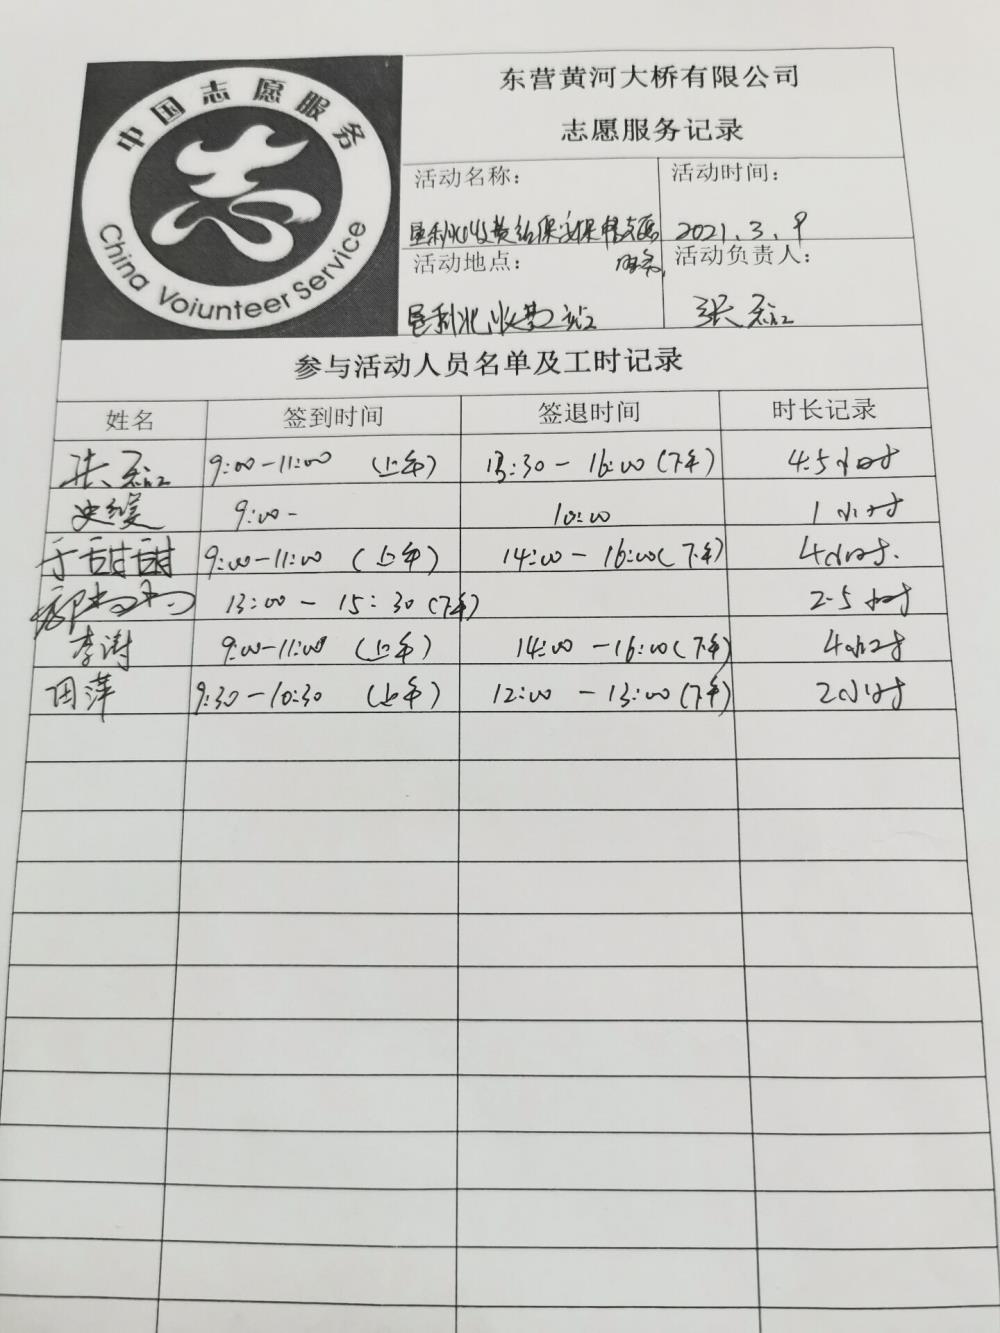 中国志愿服务
China Voiunteer Service
东营黄河大桥有限公司
志愿服务记录
活动名称：
活动时间：
垦利北收费站保安保畅志愿
服务
2021.3.9
活动地点：
活动负责人：
垦利北收费站
张磊
参与活动人员名单及工时记录
姓名 签到时间 签退时间 时长记录
张磊 9:00-11:00 (上午) 13:30-16:00(下午) 4.5小时
史媛 9:00- 10:00 1小时
于甜甜 9:00-11:00 (上午) 14:00-16:00(下午) 4小时.
13:00-15:30(下午) 2.5小时
李涛 9:00-11:00 (上午) 14:00-16:00(下午) 4小时
田萍 9:30-10:30 (上午) 12:00-13:00(下午) 2小时